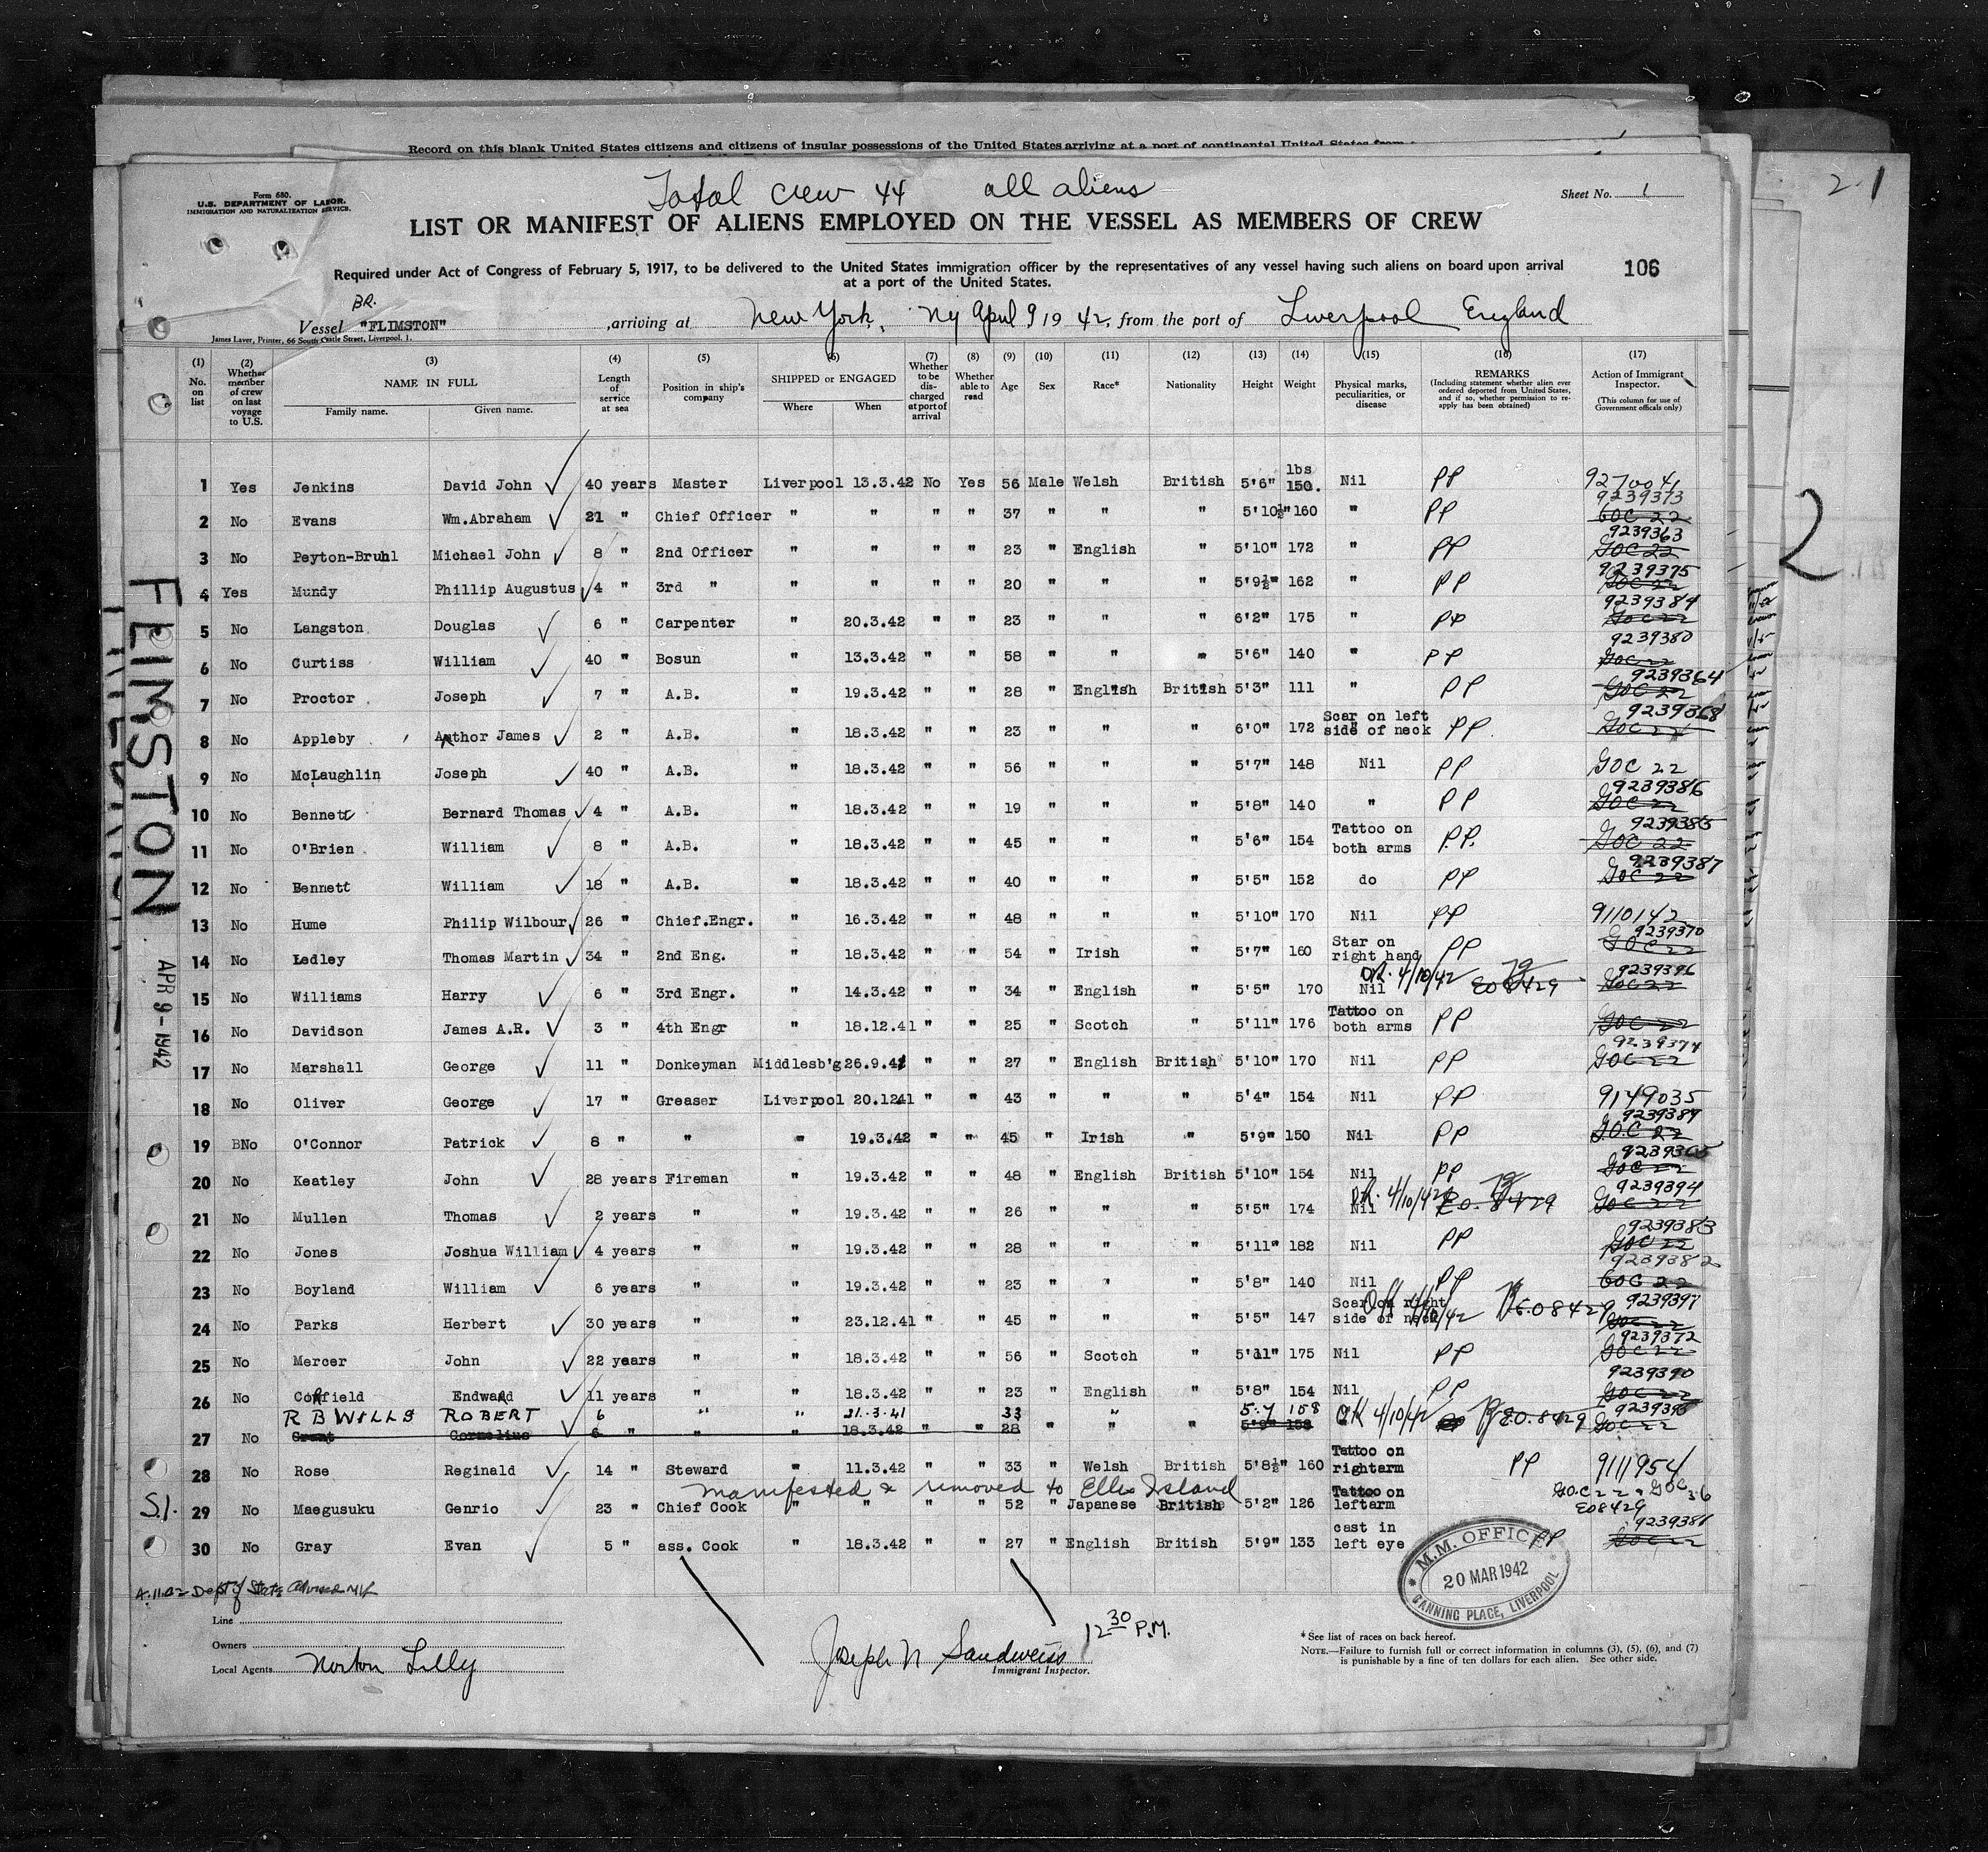 Record on this blank United States citizens and citizens of insular possessions of the United States arriving at a port of continental United States from
2-1
Form 680.
U.S. DEPARTMENT OF LABOR.
IMMIGRATION AND NATURALIZATION SERVICE.
Total crew 44 all aliens
Sheet No. 1
LIST OR MANIFEST OF ALIENS EMPLOYED ON THE VESSEL AS MEMBERS OF CREW
Required under Act of Congress of February 5, 1917, to be delivered to the United States immigration officer by the representatives of any vessel having such aliens on board upon arrival
at a port of the United States.
106
BR.
Vessel "FLIMSTON" , arriving at New York, NY April 9 19 42, from the port of Liverpool England
James Laver, Printer, 66 South Castle Street, Liverpool, 1.
(1) No. on list
(2) Whether member of crew on last voyage to U.S.
(3) NAME IN FULL Family name. Given name.
(4) Length of service at sea
(5) Position in ship's company
(6) SHIPPED or ENGAGED Where When
(7) Whether to be discharged at port of arrival
(8) Whether able to read
(9) Age
(10) Sex
(11) Race*
(12) Nationality
(13) Height
(14) Weight
(15) Physical marks, peculiarities, or disease
(16) REMARKS (Including statement whether alien ever ordered deported from United States, and if so, whether permission to re-apply has been obtained)
(17) Action of Immigrant Inspector. (This column for use of Government officials only)
1 Yes Jenkins David John 40 years Master Liverpool 13.3.42 No Yes 56 Male Welsh British 5'6" lbs 150. Nil PP 9270041
2 No Evans Wm.Abraham 21 " Chief Officer " " " " 37 " " " 5'10½" 160 " PP 9239373 GOC 22
3 No Peyton-Bruhl Michael John 8 " 2nd Officer " " " " 23 " English " 5'10" 172 " PP 9239363 GOC 22
4 Yes Mundy Phillip Augustus 4 " 3rd " " " " " 20 " " " 5'9½" 162 " PP 9239375 GOC 22
5 No Langston Douglas 6 " Carpenter " 20.3.42 " " 23 " " " 6'2" 175 " PP 9239384 GOC 22
6 No Curtiss William 40 " Bosun " 13.3.42 " " 58 " " " 5'6" 140 " PP 9239380 GOC 22
7 No Proctor Joseph 7 " A.B. " 19.3.42 " " 28 " English British 5'3" 111 " PP 9239364 GOC 22
8 No Appleby Author James 2 " A.B. " 18.3.42 " " 23 " " " 6'0" 172 Scar on left side of neck PP. 9239368 GOC 22
9 No McLaughlin Joseph 40 " A.B. " 18.3.42 " " 56 " " " 5'7" 148 Nil PP GOC 22
10 No Bennett Bernard Thomas 4 " A.B. " 18.3.42 " " 19 " " " 5'8" 140 " PP 9239386 GOC 22
11 No O'Brien William 8 " A.B. " 18.3.42 " " 45 " " " 5'6" 154 Tattoo on both arms P.P. 9239385 GOC 22
12 No Bennett William 18 " A.B. " 18.3.42 " " 40 " " " 5'5" 152 do PP 9239387 GOC 22
13 No Hume Philip Wilbour 26 " Chief.Engr. " 16.3.42 " " 48 " " " 5'10" 170 Nil PP 9110142
14 No Ledley Thomas Martin 34 " 2nd Eng. " 18.3.42 " " 54 " Irish " 5'7" 160 Star on right hand PP 9239370 GOC 22
15 No Williams Harry 6 " 3rd Engr. " 14.3.42 " " 34 " English " 5'5" 170 Nil 4/10/42 EO 8429 9239396 GOC 22
16 No Davidson James A.R. 3 " 4th Engr " 18.12.41 " " 25 " Scotch " 5'11" 176 Tattoo on both arms PP GOC 22
17 No Marshall George 11 " Donkeyman Middlesb'g 26.9.41 " " 27 " English British 5'10" 170 Nil PP 9239374 GOC 22
18 No Oliver George 17 " Greaser Liverpool 20.1241 " " 43 " " " 5'4" 154 Nil PP 9149035
19 BNo O'Connor Patrick 8 " " " 19.3.42 " " 45 " Irish " 5'9" 150 Nil PP 9239389 GOC 22
20 No Keatley John 28 years Fireman " 19.3.42 " " 48 " English British 5'10" 154 Nil PP 9239365 GOC 22
21 No Mullen Thomas 2 years " " 19.3.42 " " 26 " " " 5'5" 174 Nil 4/10/42 EO. 8429 9239394 GOC 22
22 No Jones Joshua William 4 years " " 19.3.42 " " 28 " " " 5'11" 182 Nil PP 9239383 GOC 22
23 No Boyland William 6 years " " 19.3.42 " " 23 " " " 5'8" 140 Nil PP 9239382 GOC 22
24 No Parks Herbert 30 years " " 23.12.41 " " 45 " " " 5'5" 147 Scar on right side of neck 4/10/42 E.O 8429 9239397 GOC 22
25 No Mercer John 22 years " " 18.3.42 " " 56 " Scotch " 5'11" 175 Nil PP 9239372 GOC 22
26 No Corfield Endward 11 years " " 18.3.42 " " 23 " English " 5'8" 154 Nil PP 9239390 GOC 22
R B WILLS ROBERT 6 " " 21.3.41 33 " 5.7 158 OK 4/10/42 EO. 8429 9239395
27 No Grant Cornelius 6 " " " 18.3.42 " " 28 " " " 5'9" 158 GOC 22
28 No Rose Reginald 14 " Steward " 11.3.42 " " 33 " Welsh British 5'8½" 160 Tattoo on rightarm PP 9111954
manifested & removed to Ellis Island
S.I. 29 No Maegusuku Genrio 23 " Chief Cook " " " " 52 " Japanese British 5'2" 126 Tattoo on leftarm G.O.C 22 & GOC 36 EO8429
30 No Gray Evan 5 " ass. Cook " 18.3.42 " " 27 " English British 5'9" 133 cast in left eye PP 9239381 GOC 22
FLIMSTON
APR 9-1942
2
Dept of State
M.M. OFFICE
20 MAR 1942
CANNING PLACE, LIVERPOOL
Line
Owners
Local Agents Norton Lilly
Joseph N Sandweiss 12 30 P.M.
Immigrant Inspector.
*See list of races on back hereof.
NOTE.—Failure to furnish full or correct information in columns (3), (5), (6), and (7)
is punishable by a fine of ten dollars for each alien. See other side.